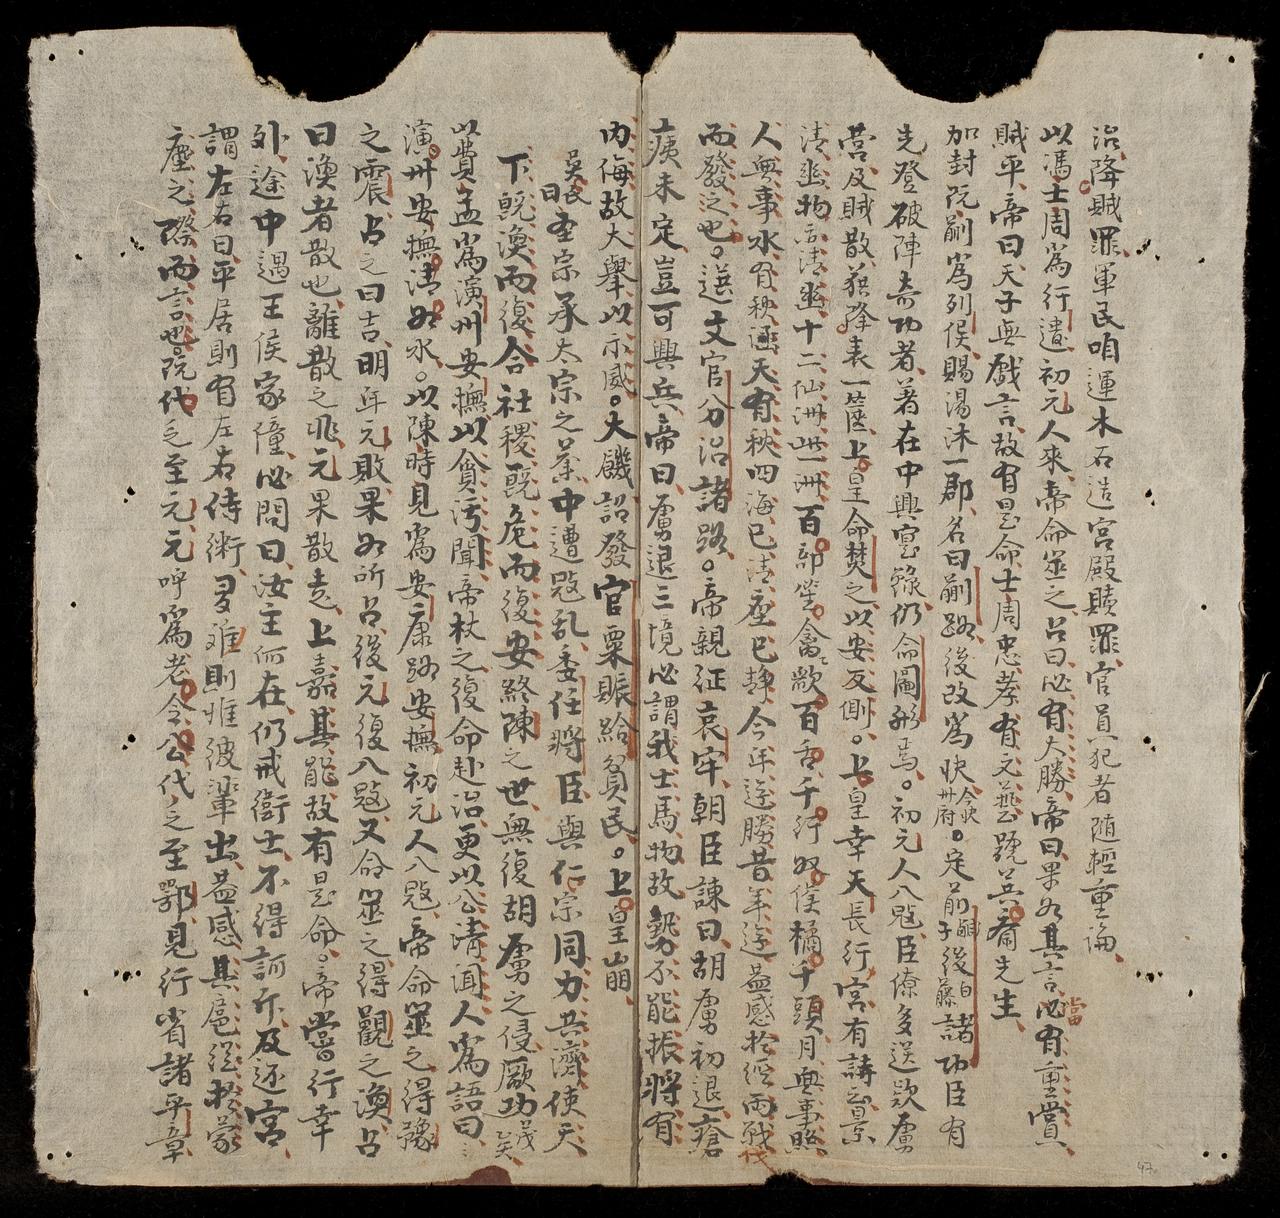 治降賊罪軍民咱運木石造宮殿贖罪官員犯者隨輕重論
以馮士周爲行遣初元人來帝命筮之占曰必有大勝帝曰果如其言必有重賞
當
賊平帝曰天子無戲言故有是命士周忠孝有文藝號共齋先生
加封阮蒯爲列侯賜湯沐一郡名曰蒯路後改爲快今快州府定前鹹子後白藤諸功臣有
先登破陣奇功者著在中興寔錄仍命圖形焉初元人入寇臣僚多送欵虜
營及賊散獲降表一篋上皇命焚之以安反側上皇幸天長行宮有詩云景
清幽物亦清幽十二仙洲此一洲百部笙禽歌百舌千行奴僕橘千頭月無事照
人無事水有秋涵天有秋四海已清塵已靜今年遊勝昔年遊蓋感於經兩戰伐
而發之也選文官分治諸路帝親征哀牢朝臣諫曰胡虜初退瘡
痍未定豈可興兵帝曰虜退三境必謂我士馬物故勢不能振將有
內侮故大舉以示威大饑詔發官粟賑給貧民上皇崩
吳氏曰聖宗承太宗之業中遭寇乱委任將臣與仁宗同力共濟使天
下既渙而復合社稷既危而復安終陳之世無復胡虜之侵厥功茂矣
以費孟爲演州安撫以貪污聞帝杖之復命赴治更以公清聞人爲語曰
演州安撫清如水以陳時見爲安康路安撫初元人入寇帝命筮之得豫
之震占之曰吉明年元敗果如所占後元復入寇又命筮之得觀之渙占
曰渙者散也離散之兆元果散走上嘉其能故有是命帝嘗行幸
外途中遇王侯家僮必問曰汝主何在仍戒衛士不得訶斥及还宮
謂左右曰平居則有左右侍衛多难則惟彼輩出蓋感其扈從於蒙
塵之際而言也阮代乏至元元呼爲老令公代之至鄂見行省諸平章
47